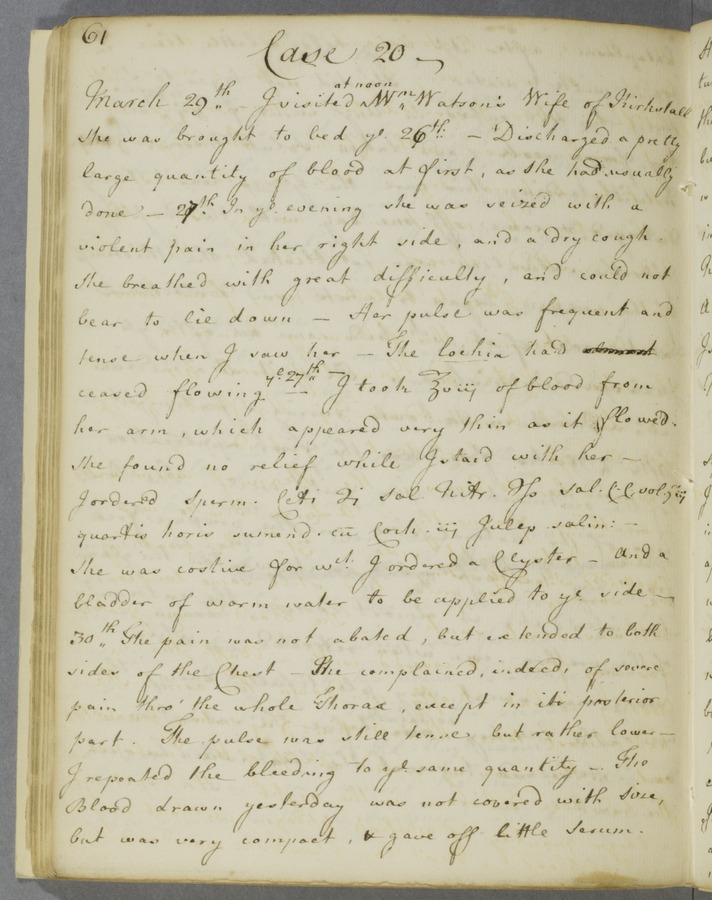 61
Case 20 —
at noon
March 29th — I visited ^ Wm Watson's Wife of Kirkstall
She was brought to bed ye. 26th — Discharged a pretty
large quantity of blood at first, as she had usually
done — 27th In ye. evening she was seized with a
violent pain in her right side, and a dry cough.
She breathed with great difficulty, and could not
bear to lie down — Her pulse was frequent and
tense when I saw her — The lochia had almost
ceased flowing ye 27th — I took ℥viij of blood from
her arm, which appeared very thin as it flowed.
She found no relief while I staid with her —
I ordered sperm. Ceti ʒj sal. Nitr. ℈ss sal. C.C. vol.
quartis horis sumend. cū Coch. iij Julep. salin: —
She was costive for wch. I ordered a Clyster — And a
bladder of warm water to be applied to ye. side —
30th The pain was not abated, but extended to both
sides of the Chest — She complained, indeed, of severe
pain thro' the whole Thorax, except in its posterior
part. The pulse was still tense but rather lower —
I repeated the bleeding to ye. same quantity — The
Blood drawn yesterday was not covered with size,
but was very compact, & gave off little serum.